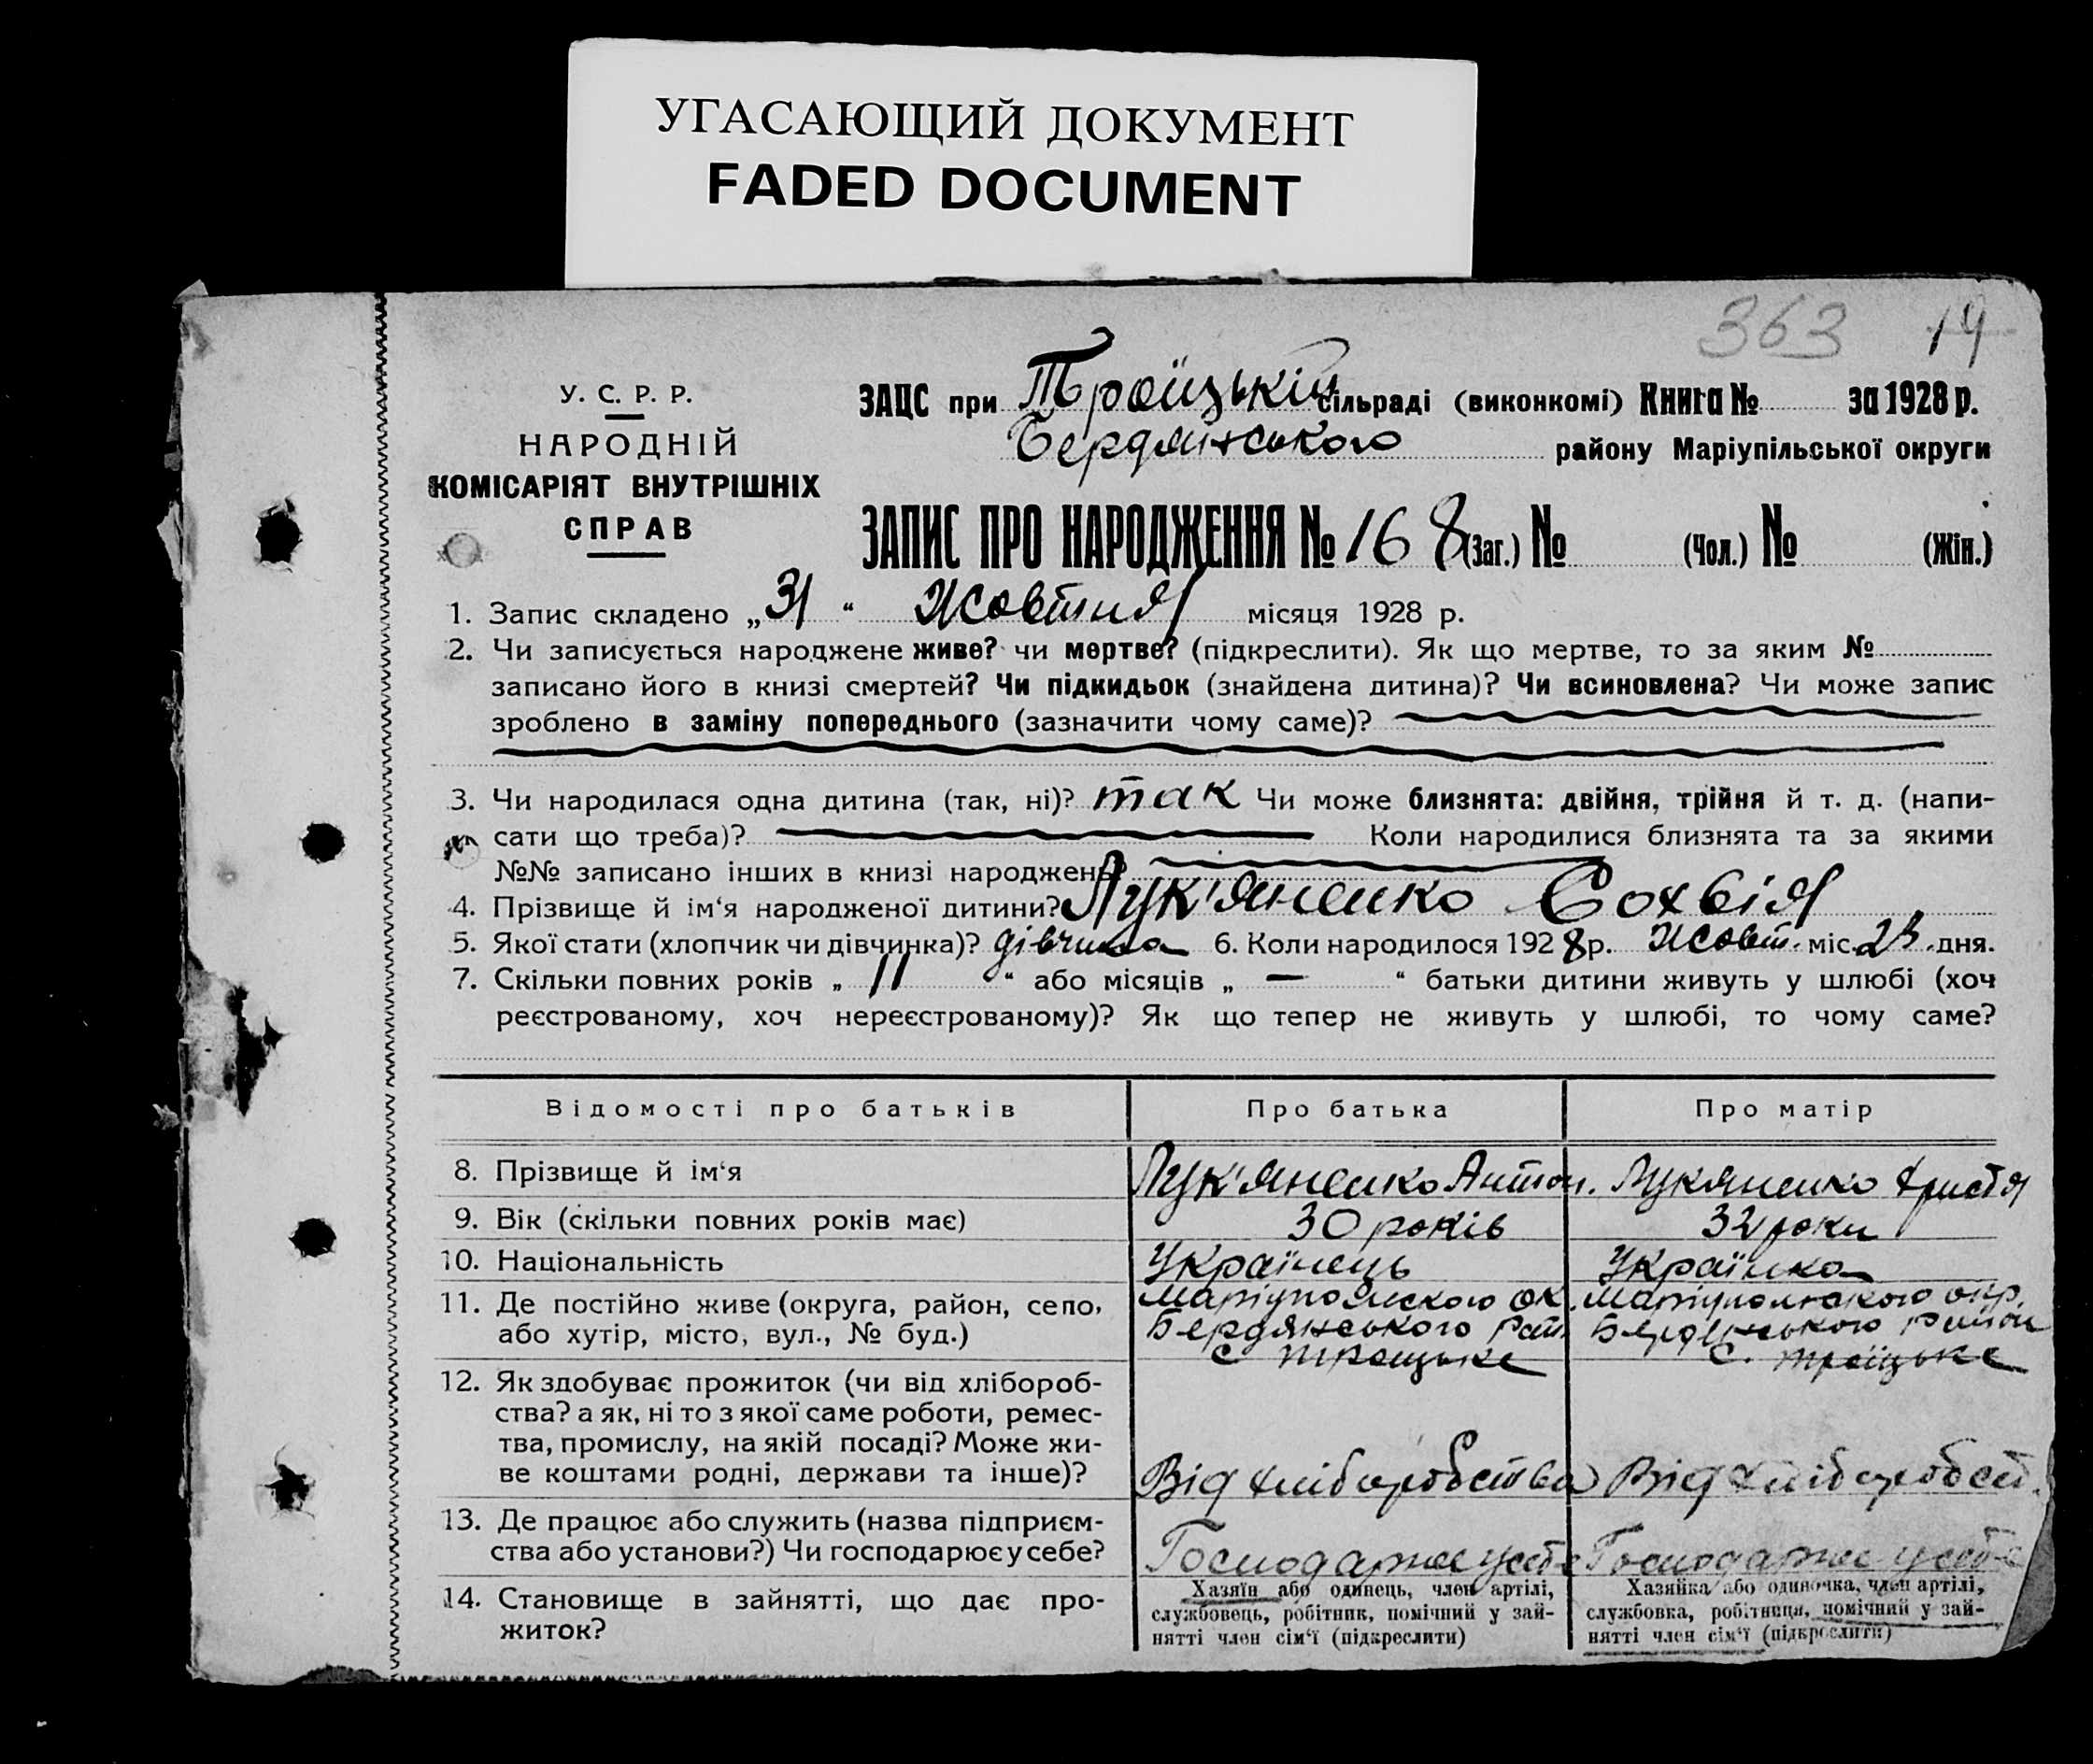 УГАСАЮЩИЙ ДОКУМЕНТ
FADED DOCUMENT
363 14
У. С. Р. Р.
НАРОДНІЙ
КОМІСАРІЯТ ВНУТРІШНІХ
СПРАВ
ЗАЦС при Троїцькій сільраді (виконкомі) Книга № за 1928 р.
Бердянського району Маріупільської округи
ЗАПИС ПРО НАРОДЖЕННЯ № 168 (Заг.) № (Чол.) № (Жін.)
1. Запис складено „31“ Жовтня місяця 1928 р.
2. Чи записується народжене живе? чи мертве? (підкреслити). Як що мертве, то за яким №
записано його в книзі смертей? Чи підкидьок (знайдена дитина)? Чи всиновлена? Чи може запис
зроблено в заміну попереднього (зазначити чому саме)?
3. Чи народилася одна дитина (так, ні)? так Чи може близнята: двійня, трійня й т. д. (напи-
сати що треба)? Коли народилися близнята та за якими
№№ записано інших в книзі народжень?
4. Прізвище й ім‘я народженої дитини? Лук'яненко Сохвія
5. Якої стати (хлопчик чи дівчинка)? дівчина 6. Коли народилося 1928 р. Жовт. міс. 23 дня.
7. Скільки повних років „ 11 “ або місяців „ — “ батьки дитини живуть у шлюбі (хоч
реєстрованому, хоч нереєстрованому)? Як що тепер не живуть у шлюбі, то чому саме?
Відомості про батьків Про батька Про матір
8. Прізвище й ім‘я Лук'яненко Антон. Лукяненко Христя
9. Вік (скільки повних років має) 30 років 32 роки
10. Національність Українець Українка
11. Де постійно живе (округа, район, село, Маріупольского ок. Маріупольського окр.
або хутір, місто, вул., № буд.) Бердянського Рай. Бердянського район
с Троицьке с. Троїцьке
12. Як здобуває прожиток (чи від хлібороб-
ства? а як, ні то з якої саме роботи, ремес-
тва, промислу, на якій посаді? Може жи-
ве коштами родні, держави та інше)? Від хліборобства Від хліборобст.
13. Де працює або служить (назва підприєм-
ства або установи?) Чи господарює у себе? Господарює у себе Господарює у себе
14. Становище в зайнятті, що дає про-
житок?
Хазяїн або одинець, член артілі,
службовець, робітник, помічний у зай-
нятті член сім‘ї (підкреслити)
Хазяйка або одиночка, член артілі,
службовка, робітниця, помічний у зай-
нятті член сім‘ї (підкреслити)